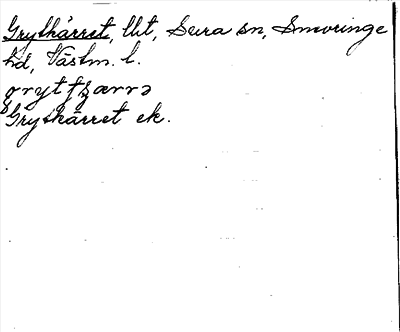 Grytkärret, llt, Sura sn, Snevringe
hd, Västm. l.
grytʃʒærrə
Grytkärret ek.